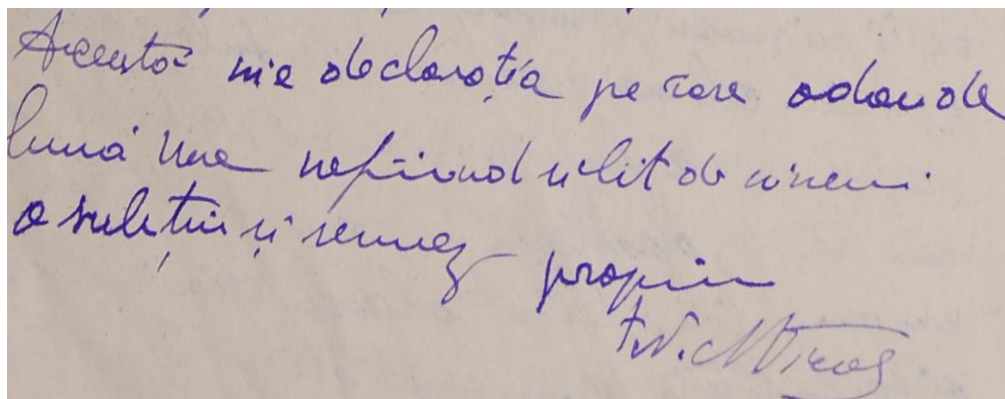 Aceasta mie declarația pe care o dau de
bună voie nefiind silit de nimeni
o susțin și semnez propriu